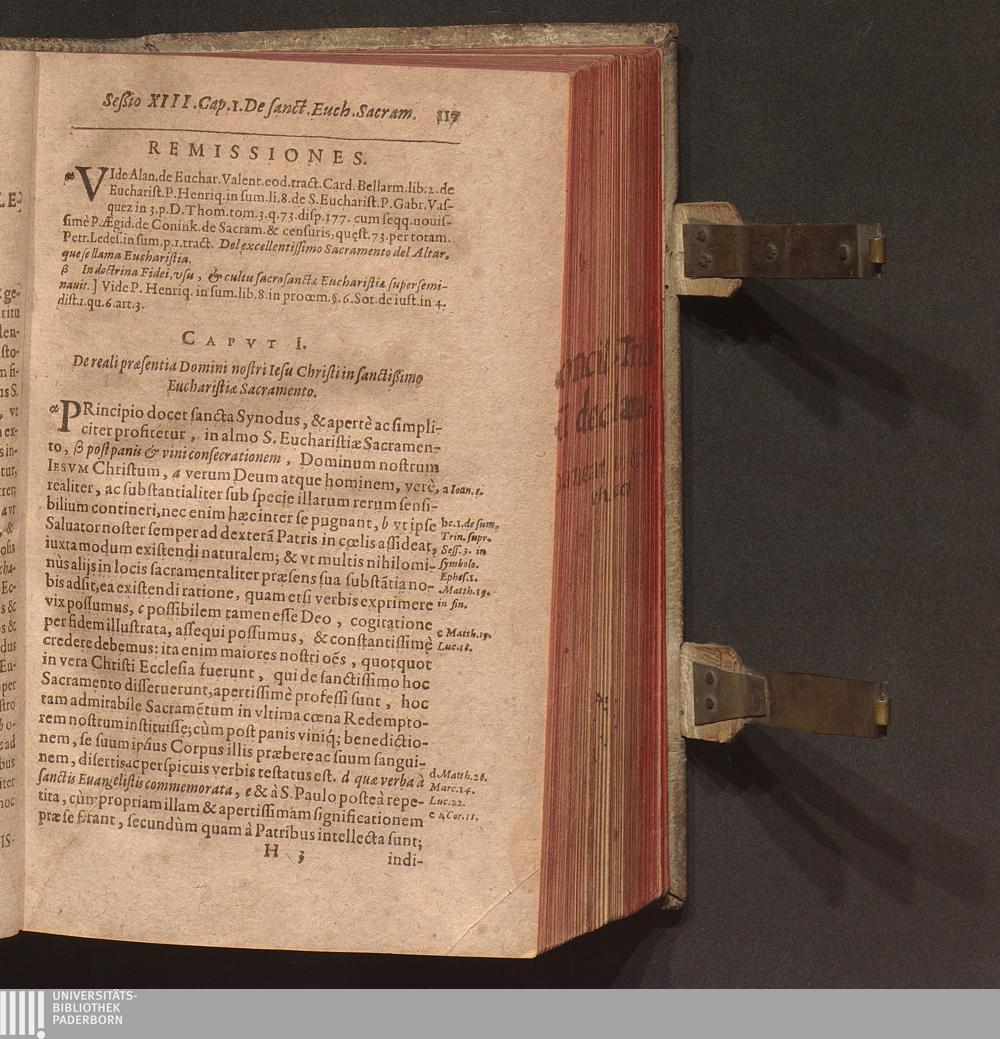 Seßio XIII. Cap. 1. De sanct. Euch. Sacram. 117
REMISSIONES.
α VIde Alan. de Euchar. Valent. eod. tract. Card. Bellarm. lib. 2. de
Eucharist. P. Henriq. in sum. li. 8. de S. Eucharist. P. Gabr. Vas-
quez in 3. p. D. Thom. tom. 3. q. 73. disp. 177. cum seqq. nouis-
simè P. Ægid. de Conink. de Sacram. & censuris, quęst. 73. per totam.
Petr. Ledes. in sum. p. 1. tract. Del excellentissimo Sacramento del Altar,
que se llama Eusharistia.
β In doctrina Fidei, vsu, & cultu sacrosanctæ Eucharistiæ superemi-
nauit. ] Vide P. Henriq. in sum. lib. 8. in procem. §. 6. Sot. de iust. in 4.
dist. 1. qu. 6. art. 3.
CAPVT I.
De reali præsentia Domini nostri Iesu Christi in sanctißimo
Eucharistiæ Sacramento.
α PRincipio docet sancta Synodus, & apertè ac simpli-
citer profitetur, in almo S. Eucharistiæ Sacramen-
to, β post panis & vini consecrationem, Dominum nostrum
IESVM Christum, a verum Deum atque hominem, verè, a Ioan. 1.
realiter, ac substantialiter sub specie illarum rerum sensi-
bilium contineri, nec enim hæc inter se pugnant, b vt ipse bc. 1. de sum.
Saluator noster semper ad dexterã Patris in cœlis assideat, Trin. supr.
iuxta modum existendi naturalem; & vt multis nihilomi- Sess. 3. in
nùs alijs in locis sacramentaliter præsens sua substãtia no- symbolo.
bis adsit, ea existendi ratione, quam etsi verbis exprimere Ephes. 1.
vix possumus, c possibilem tamen esse Deo, cogitatione Matth. 19. in fin.
per fidem illustrata, assequi possumus, & constantissimè c Matth. 19.
credere debemus: ita enim maiores nostri oẽs, quotquot Luc. 18.
in vera Christi Ecclesia fuerunt, qui de sanctissimo hoc
Sacramento disseruerunt, apertissimè professi sunt, hoc
tam admirabile Sacramẽtum in vltima cœna Redempto-
rem nostrum instituisse; cùm post panis viniq; benedictio-
nem, se suum ipsius Corpus illis præbere ac suum sangui-
nem, disertis ac perspicuis verbis testatus est. d quæ verba à d Matth. 26.
sanctis Euangelistis commemorata, e & à S. Paulo posteà repe- Marc. 14.
tita, cùm propriam illam & apertissimam significationem Luc. 22.
præ se ferant, secundùm quam à Patribus intellecta sunt; e 1. Cor. 11.
H 3 indi-
UNIVERSITÄTS-
BIBLIOTHEK
PADERBORN